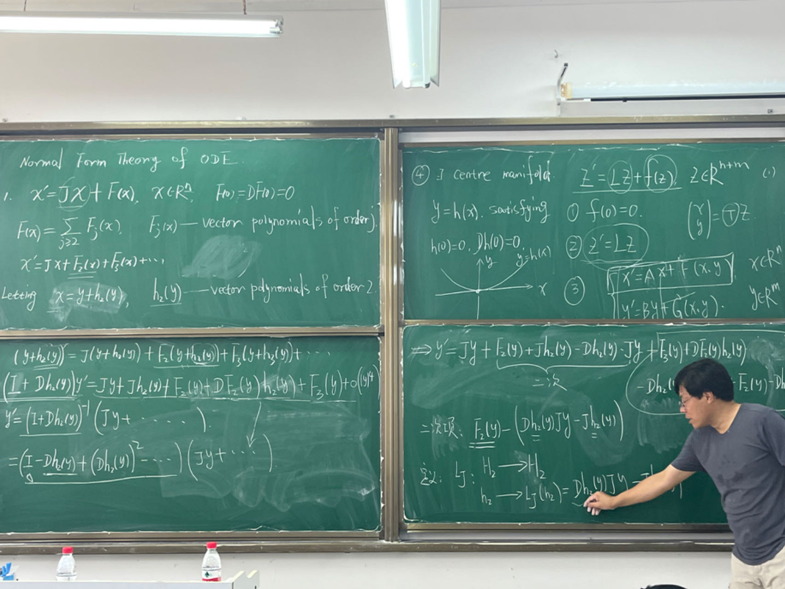 Normal Form Theory of ODE
1. x' = Jx + F(x), x∈Rⁿ, F(0)=DF(0)=0
F(x) = ∑_{j≥2} F_j(x), F_j(x) — vector polynomials of order j
x' = Jx + F₂(x) + F₃(x) + ⋯
Letting x = y + h₂(y), h₂(y) — vector polynomials of order 2
(y+h₂(y))' = J(y+h₂(y)) + F₂(y+h₂(y)) + F₃(y+h₂(y)) + ⋯
(I + Dh₂(y))y' = Jy + Jh₂(y) + F₂(y) + DF₂(y)h₂(y) + F₃(y) + o(|y|⁴
y' = (I + Dh₂(y))⁻¹ (Jy + ⋯ )
= (I − Dh₂(y) + (Dh₂(y))² − ⋯ ) (Jy + ⋯ )
④ ∃ centre manifold
y = h(x), satisfying
h(0)=0, Dh(0)=0
y
y=h(x)
x
z' = Lz + f(z) z∈Rⁿ⁺ᵐ (1)
① f(0)=0.
(x y) = Tz
② z' = Lz
③ x' = Ax + F(x,y) x∈Rⁿ
y' = By + G(x,y). y∈Rᵐ
⇒ y' = Jy + F₂(y) + Jh₂(y) − Dh₂(y)·Jy + F₃(y) + DF₂(y)h₂(y)
二次
−Dh₂(
−F₂(y) − Dh
二次项: F₂(y) − (Dh₂(y)Jy − Jh₂(y))
定义: L_J: H₂ → H₂
h₂ → L_J(h₂) = Dh₂(y)Jy −